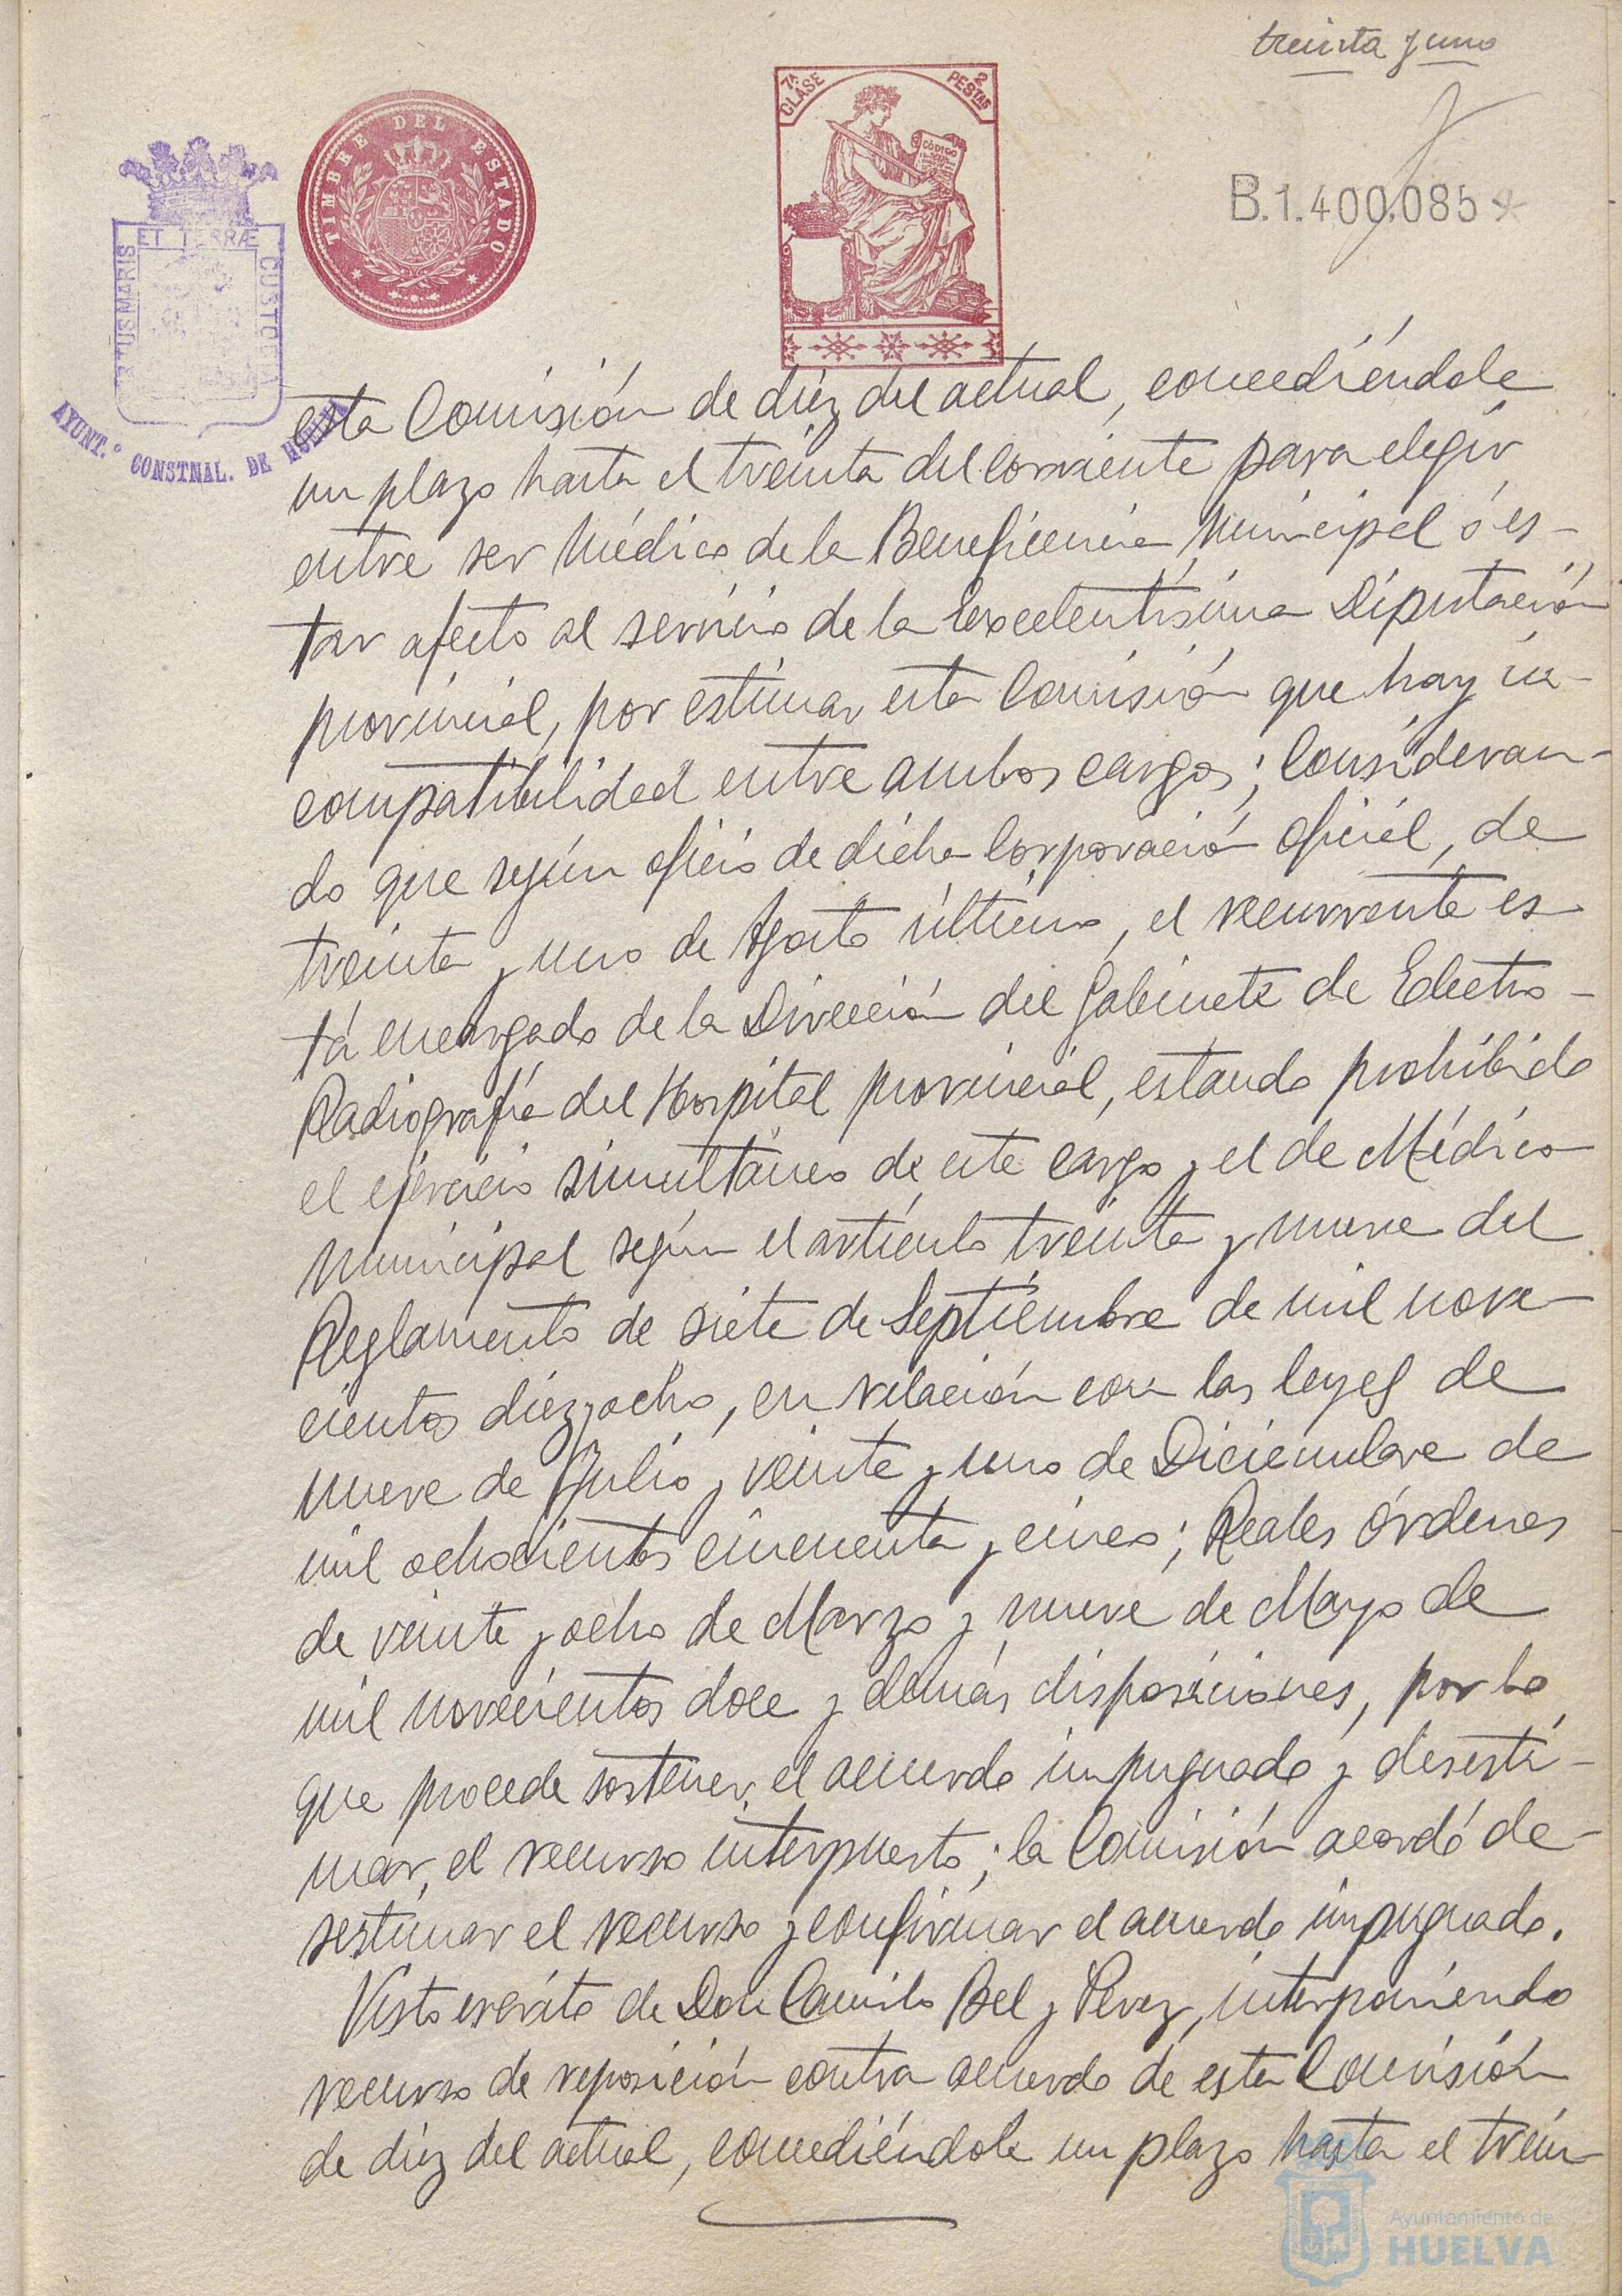 treinta y uno
7ª CLASE
2 PESTAS
CÓDIGO
TIMBRE DEL ESTADO
B.1.400.085
ET TERRÆ
TUS MARIS
CUSTO
AYUNT.º CONSTNAL. DE HUELVA
esta Comisión de diez del actual, concediéndole
un plazo hasta el treinta del corriente para elegir
entre ser Médico de la Beneficencia Municipal ó es-
tar afecto al servicio de la Excelentísima Diputación
provincial, por estimar esta Comisión que hay in-
compatibilidad entre ambos cargos; Consideran-
do que según oficio de dicha Corporación oficial, de
treinta y uno de Agosto último, el recurrente es-
tá encargado de la Dirección del Gabinete de Electro-
Radiografía del Hospital provincial, estando prohibido
el ejercicio simultáneo de este cargo y el de Médico
Municipal según el artículo treinta y nueve del
Reglamento de siete de Septiembre de mil nove-
cientos diez y ocho, en relación con las leyes de
nueve de Julio y veinte y uno de Diciembre de
mil ochocientos cincuenta y cinco; Reales órdenes
de veinte y ocho de Marzo y nueve de Mayo de
mil novecientos doce y demás disposiciones, por lo
que procede sostener el acuerdo impugnado y desesti-
mar el recurso interpuesto; la Comisión acordó de-
sestimar el recurso y confirmar el acuerdo impugnado.
Visto escrito de Don Camilo Bel y Perez, interponiendo
recurso de reposición contra acuerdo de esta Comisión
de diez del actual, concediéndole un plazo hasta el trein-
Ayuntamiento de
HUELVA